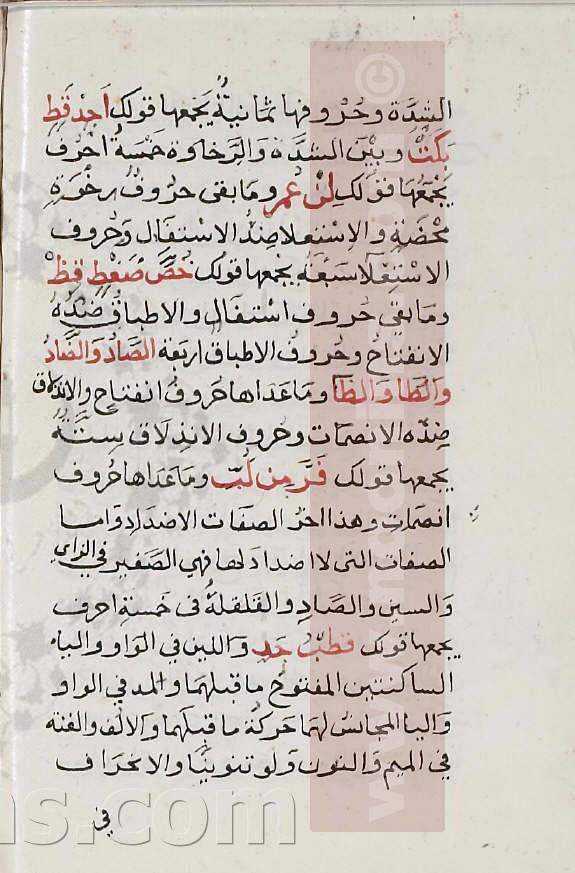 الشِدَّة وحُرُوفها ثمانيةٌ يَجمعها قولك اَجِدْ قَطٍ
بَكَتْ وبَيْنَ الشدَّة والرَخاوة خَمْسَةُ احْرُف
يَجمَعُهَا قَولك لِنْ عُمَر ومَا بقى حرُوفُ رخْوَةٍ
محْضَةٍ والاِسْتعلا ضِدُّ الاسْتفال وحُروف
الاسْتِعْلَا سَبْعَةٌ يجمعها قولك خُصَّ ضَغْطٍ قِظْ
ومَا بقى حُروف استفال والاطباق ضدُّهُ
الانفتاح وحُروفُ الاطباق اربَعَة الصَّادُ وَالضَّادُ
وَالطَا وَالظَا ومَاعَدَاها حَروفُ انفتاحٍ والانذلاق
ضِدّه الانصمَات وحُروف الانذلاق سِتَّةٌ
يجمعها قولك فَرَّ مِن لُبِّ ومَاعَداهاحُروف
انصمات وهذا اخرُ الصفات الاضداد واما
الصفات التى لا اضداد لها فهي الصَفير في الزاي
وَالسين والصَّادِ والقلقلةُ فى خمسةِ احرف
يجمعها قولك قُطْبُ جَدٍ وَاللين في الوَاو والياء
الساكنتين المفتوحُ مَا قبلهما والمد في الواو
وَاليا المجانسُ لهمَا حَركة ما قبلهما والالف والغنه
في الميم وَالنون وَلو تنوينًا والانحراف
في
www.
ns.com
©